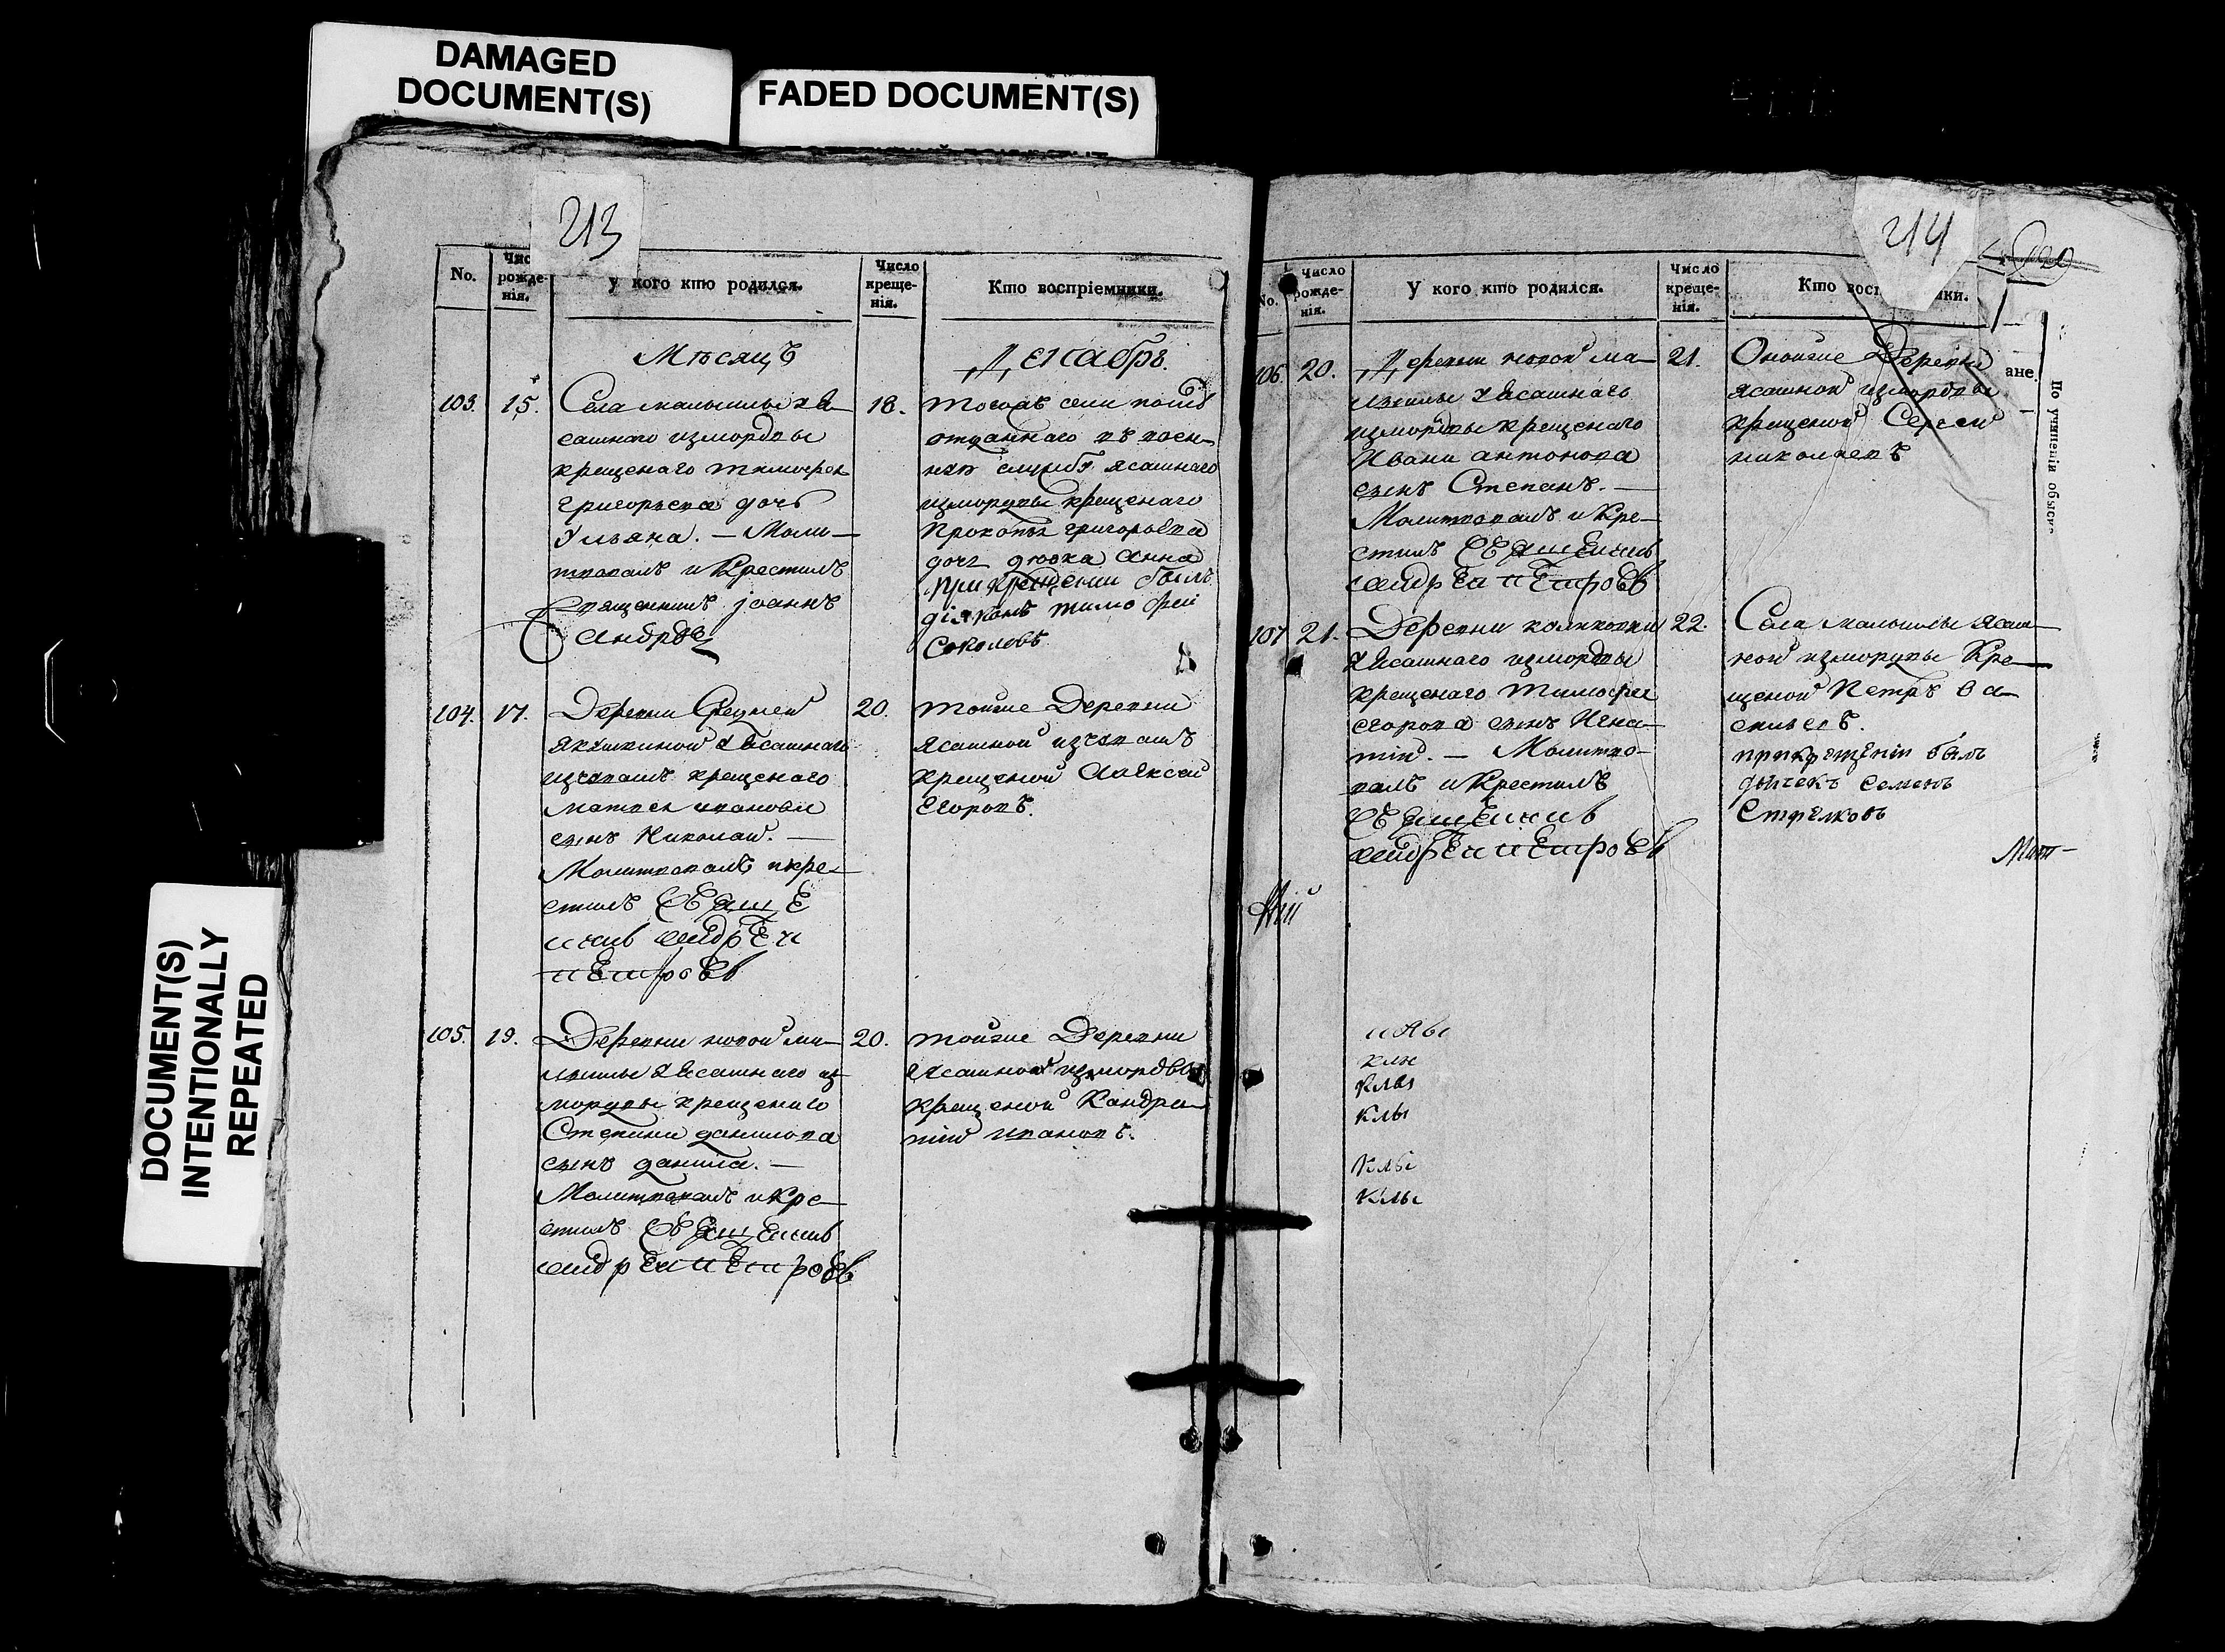 DAMAGED
DOCUMENT(S)
FADED DOCUMENT(S)
DOCUMENT(S)
INTENTIONALLY
REPEATED
213
No.
рожде-
нія.
У кого кто родился.
Число
креще-
нія.
Кто воспріемники.
Мѣсяцъ
Декабрь.
103.
15.
Села малышлы Яа
сашнаго измордвы
крещенаго тимофея
григорьева дочь
Ульяна. — Моли—
твовалъ и Крестилъ
Священникъ Iоаннъ
Андреевъ
18.
тогожъ села
отданнаго въ воен-
ную службу ясашнаго
измордвы крещенаго
Прокопья григорьева
дочь девка Анна
при крещении былъ
діяконъ тимофей
Соколовъ
104.
17.
Деревни Средней
Якушкиной Ясашнаго
изчювашъ крещенаго
матвея иванова
сынъ Николай. —
Молитвовалъ икре—
стилъ свяще
никъ андреи
петровъ
20.
тойже Деревни
ясашной изчювашъ
крещеной Алексей
Егоровъ.
105.
19.
Деревни новой ма—
Ясашнаго из
мордвы крещенаго
Степана данилова
сынъ данила. —
Молитвовалъ икре—
стилъ священикъ
андреи петровъ
20.
тойже Деревни
Ясашной измордвы
крещеной Кандра—
тий ивановъ.
214
No.
Число
рожде-
нія.
У кого кто родился.
Число
креще-
нія.
Кто
ики.
106.
20.
Деревни новой ма—
Ясашнаго
измордвы крещенаго
Ивана антонова
сынъ Степанъ. —
Молитвовалъ и Кре—
стилъ священикъ
андреи петровъ
21.
Оноиже Деревни
ясашной измордвы
крещеной Сергей
николаевъ
ане.
По учиненіи обыск
107
21.
Деревни
Ясашнаго измордвы
крещенаго тимофея
егорова сынъ Игна—
тий. — Молитво—
валъ и Крестилъ
священикъ
андреи петровъ
22.
Села малышлы Ясаш—
ной измордвы Кре—
щеной Петръ Ва—
сильевъ.
прикрещеніи былъ
дьячекъ Семенъ
Стрелковъ